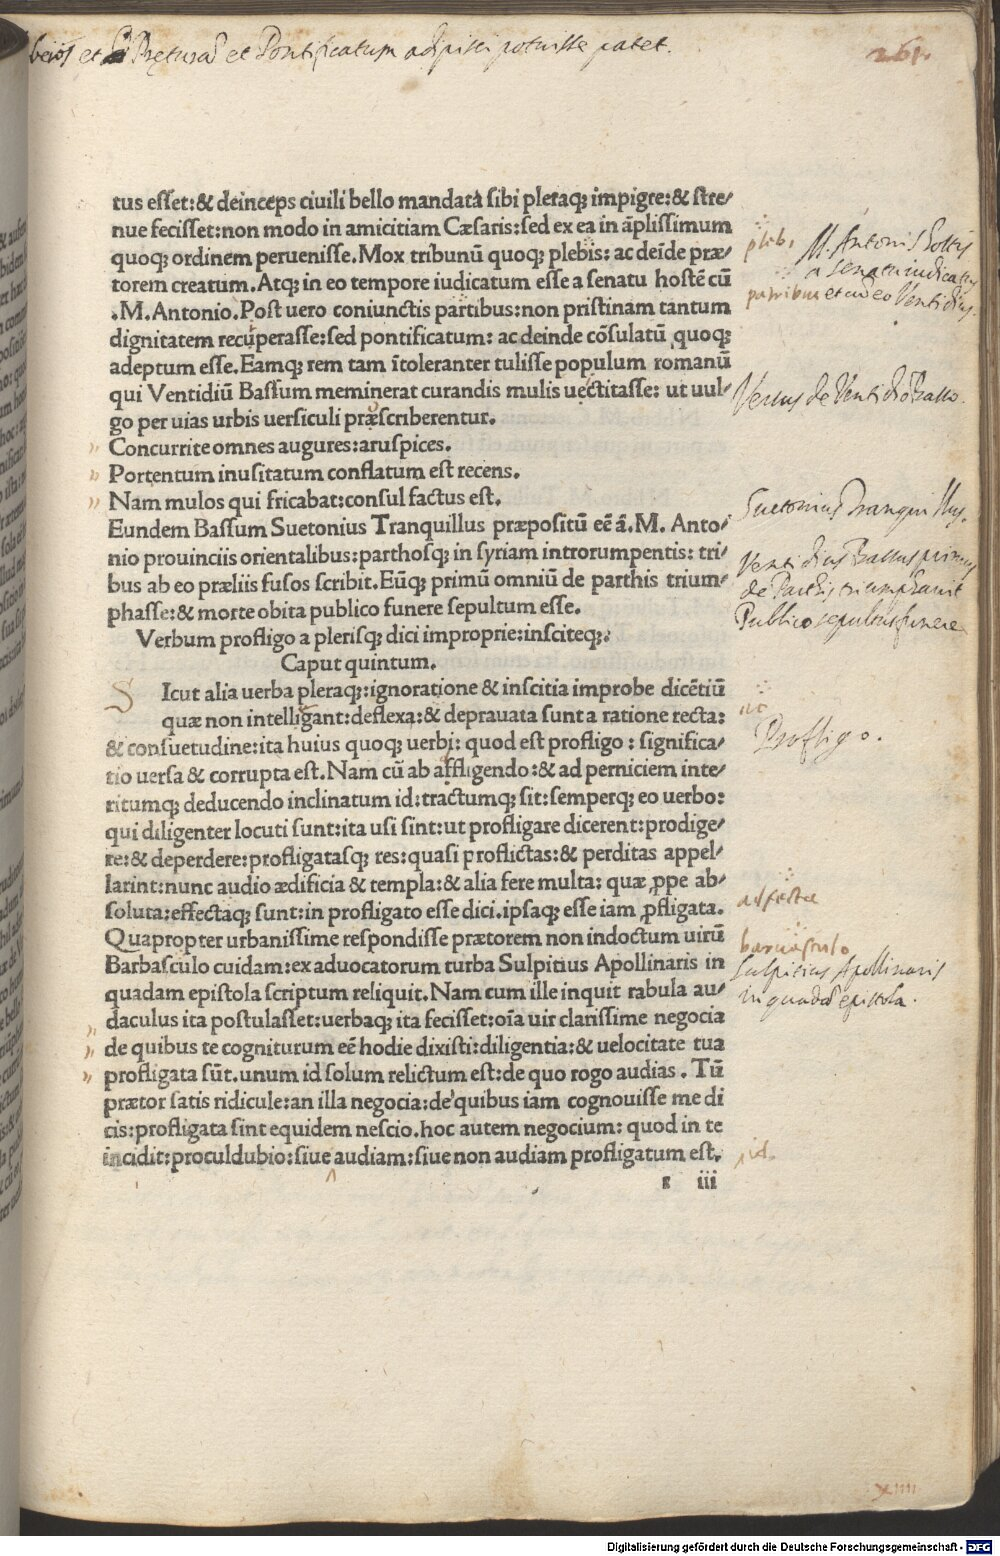 et Pręturā et Pontificatum adipisci potuisse patet.
261.
tus esset:& deinceps ciuili bello mandata sibi pleraq; impigre:& stre/
nue fecisset:non modo in amicitiam Cæsaris:sed ex ea in āplissimum
quoq; ordinem peruenisse. Mox tribunū quoq; plebis: ac deīde præ/
torem creatum. Atq; in eo tempore iudicatum esse a senatu hostē cū
.M. Antonio. Post uero coniunctis partibus:non pristinam tantum
dignitatem recuperasse:sed pontificatum: ac deinde cōsulatū quoq;
adeptum esse. Eamq; rem tam ītoleranter tulisse populum romanū
qui Ventidiū Bassum meminerat curandis mulis uectitasse: ut uul/
go per uias urbis uersiculi præscriberentur.
Concurrite omnes augures:aruspices.
Portentum inusitatum conflatum est recens.
Nam mulos qui fricabat:consul factus est.
Eundem Bassum Suetonius Tranquillus præpositū eē ā. M. Anto/
nio prouinciis orientalibus:parthosq; in syriam introrumpentis: tri/
bus ab eo præliis fusos scribit. Eūq; primū omniū de parthis trium/
phasse:& morte obita publico funere sepultum esse.
Verbum profligo a plerisq; dici improprie:insciteq;.
Caput quintum.
S Icut alia uerba pleraq;:ignoratione & inscitia improbe dicētiū
quæ non intelligant:deflexa:& deprauata sunt a ratione recta:
& consuetudine:ita huius quoq; uerbi: quod est profligo : significa/
tio uersa & corrupta est. Nam cū ab affligendo:& ad perniciem inte/
ritumq; deducendo inclinatum id:tractumq; sit:semperq; eo uerbo:
qui diligenter locuti sunt:ita usi sint:ut profligare dicerent:prodige/
re:& deperdere:profligatasq; res:quasi proflictas:& perditas appel/
larint:nunc audio ædificia & templa:& alia fere multa: quæ ꝓpe ab/
soluta:effectaq; sunt:in profligato esse dici.ipsaq; esse iam ꝓfligata.
Quapropter urbanissime respondisse prætorem non indoctum uirū
Barbasculo cuidam:ex aduocatorum turba Sulpitius Apollinaris in
quadam epistola scriptum reliquit. Nam cum ille inquit rabula au/
daculus ita postulasset:uerbaq; ita fecisset:oīa uir clarissime negocia
de quibus te cogniturum eē hodie dixisti:diligentia:& uelocitate tua
profligata sūt.unum id solum relictum est:de quo rogo audias . Tū
prætor satis ridicule:an illa negocia:de quibus iam cognouisse me di
cis:profligata sint equidem nescio.hoc autem negocium: quod in te
incidit:proculdubio:siue audiam:siue non audiam profligatum est.
r iii
plebi
M. Antonius hostis
a senatu iudicatus
patribus
et cum eo Ventidius.
Versus de Ventidio Basso.
Suetonius Tranquillus.
Ventidius Bassus primus
de Parthis triumphauit
Publico sepultus funere
Profligo.
adfecta
Sulpicius Apollinaris
in quadā epistola.
id.
Digitalisierung gefördert durch die Deutsche Forschungsgemeinschaft - DFG